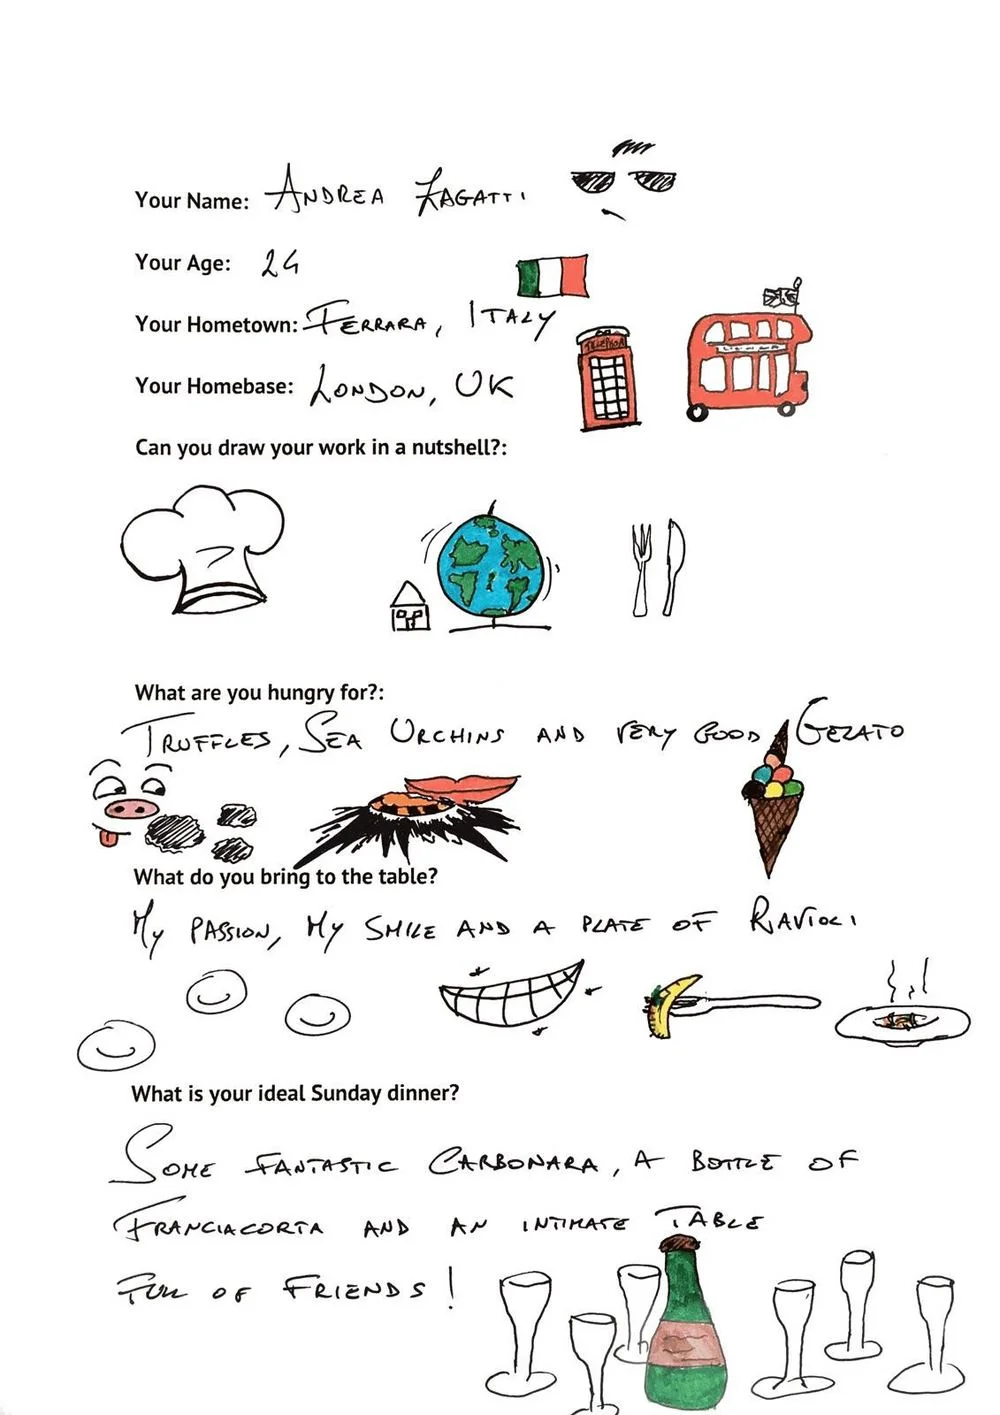 Your Name: ANDREA ZAGATTI
Your Age: 24
Your Hometown: FERRARA, ITALY
TELEPHON
Your Homebase: LONDON, UK
Can you draw your work in a nutshell?:
What are you hungry for?:
TRUFFLES, SEA URCHINS AND VERY GOOD GELATO
What do you bring to the table?
MY PASSION, MY SMILE AND A PLATE OF RAVIOLI
What is your ideal Sunday dinner?
SOME FANTASTIC CARBONARA, A BOTTLE OF
FRANCIACORTA AND AN INTIMATE TABLE
FULL OF FRIENDS!